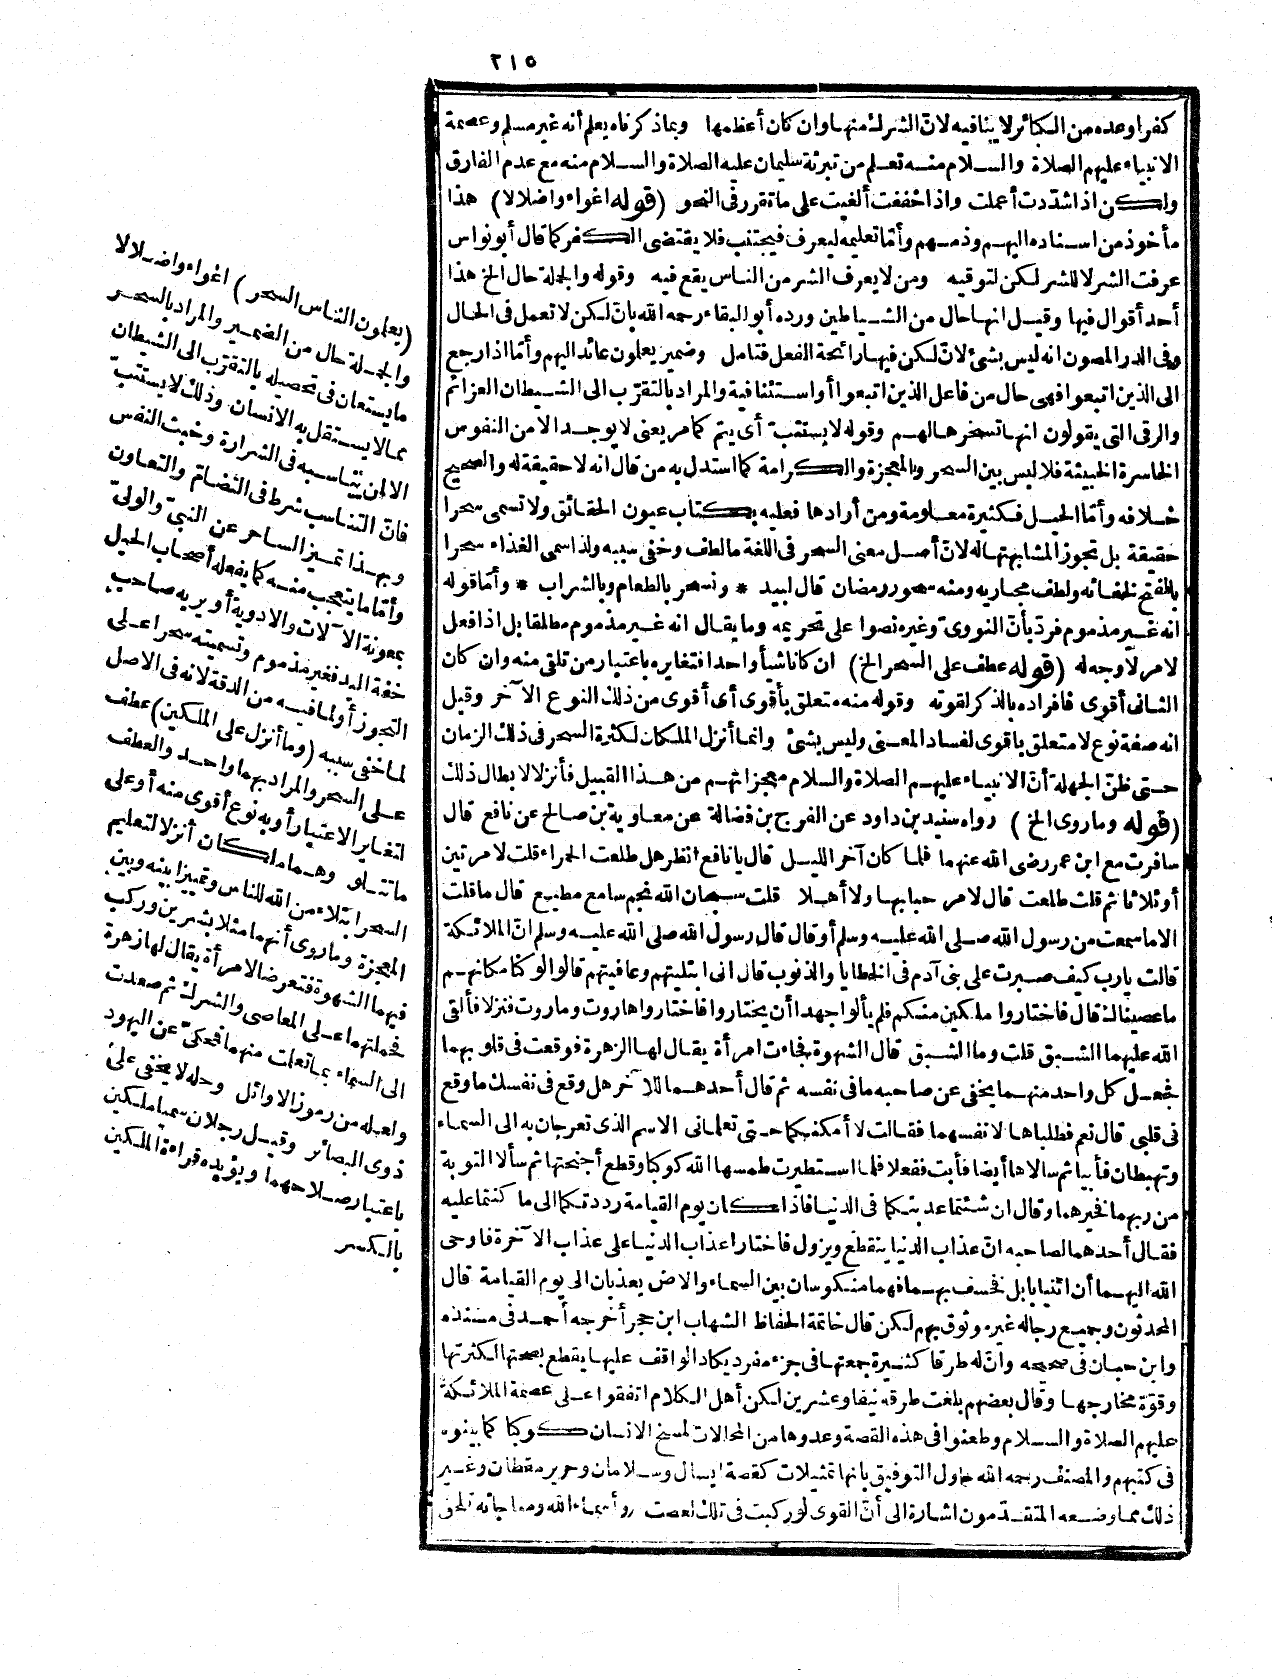 ٢١٥
كفرا وعده من الكبائر لا ينافيه لانّ الشرك منها وان كان أعظمها وبما ذكرناه يعلم أنه غير مسلم وعصمة
الانبياء عليهم الصلاة والسلام منه تعلم من تبرئة سليمان عليه الصلاة والسلام منه مع عدم الفارق
ولكن اذا شدّدت أعملت واذا خففت ألغيت على ما تقرر فى النحو (قوله اغواء واضلالا) هذا
مأخوذ من اسناده اليهم وذمهم وأمّا تعليمه ليعرف فيجتنب فلا يقتضى الكفر كما قال أبو نواس
عرفت الشر لا للشر لكن لتوقيه ومن لا يعرف الشر من الناس يقع فيه وقوله والجملة حال الخ هذا
أحد أقوال فيها وقيل انها حال من الشياطين ورده أبو البقاء رحمه الله بانّ لكن لا تعمل فى الحال
وفى الدر المصون انه ليس بشئ لانّ لكن فيها رائحة الفعل فتامل وضمير يعلمون عائد اليهم وأمّا اذا رجع
الى الذين اتبعوا فهى حال من فاعل الذين اتبعوا أو استئنافية والمراد بالتقرّب الى الشيطان العزائم
والرقى التى يقولون انها تسخرها لهم وقوله لا يستتب أى يتم كما مر يعنى لا يوجد الا من النفوس
الخاسرة الخبيثة فلا لبس بين السحر والمعجزة والكرامة كما استدل به من قال انه لا حقيقة له والصحيح
خلافه وأمّا الحيل فكثيرة معلومة ومن أرادها فعليه بكتاب عيون الحقائق ولا تسمى سحرا
حقيقة بل تجوز المشابهتها له لانّ أصل معنى السحر فى اللغة ما لطف وخفى سببه ولذا سمى الغذاء سحرا
بالفتح لخفائه ولطف مجاريه ومنه سحور رمضان قال لبيد * ونسحر بالطعام وبالشراب * وأمّا قوله
انه غير مذموم فردّ بأنّ النووىّ وغيره نصوا على تحريمه وما يقال انه غير مذموم مطلقا بل اذا فعل
لامر لا وجه له (قوله عطف على السحر الخ) ان كانا شيأ واحدا فتغايره باعتبار من تلقى منه وان كان
الثانى أقوى فافراده بالذكر لقوته وقوله منه متعلق بأقوى أى أقوى من ذلك النوع الآخر وقيل
انه صفة نوع لا متعلق باقوى لفساد المعنى وليس بشئ وانما أنزل الملكان لكثرة السحر فى ذلك الزمان
حتى ظنّ الجهلة أنّ الانبياء عليهم الصلاة والسلام معجزاتهم من هذا القبيل فأنزلا لابطال ذلك
(قوله وما روى الخ) رواه سنيد بن داود عن الفرج بن فضالة عن معاوية بن صالح عن نافع قال
سافرت مع ابن عمر رضى الله عنهما فلما كان آخر الليل قال يا نافع انظر هل طلعت الحمراء قلت لا مرتين
أو ثلاثا ثم قلت طلعت قال لا مرحبا بها ولا أهلا قلت سبحان الله نجم سامع مطيع قال ما قلت
الا ما سمعت من رسول الله صلى الله عليه وسلم أو قال قال رسول الله صلى الله عليه وسلم انّ الملائكة
قالت يارب كيف صبرت على بنى آدم فى الخطايا والذنوب قال انى ابتليتهم وعافيتهم قالوا لو كنا مكانهم
ما عصيناك قال فاختاروا ملكين منكم فلم يألوا جهدا أن يختاروا فاختاروا هاروت وماروت فنزلا فألقى
الله عليهما الشبق قلت وما الشبق قال الشهوة فجاءت امرأة يقال لها الزهرة فوقعت فى قلوبهما
فجعل كل واحد منهما يخفى عن صاحبه ما فى نفسه ثم قال أحدهما للآخر هل وقع فى نفسك ما وقع
فى قلبى قال نعم فطلباها لانفسهما فقالت لا أمكنكما حتى تعلمانى الاسم الذى تعرجان به الى السماء
وتهبطان فأبيا ثم سالاها أيضا فأبت ففعلا فلما استطيرت طمسها الله كوكبا وقطع أجنحتها ثم سألا التوبة
من ربهما فخيرهما وقال ان شئتما عذبتكما فى الدنيا فاذا كان يوم القيامة رددتكما الى ما كنتما عليه
فقال أحدهما لصاحبه انّ عذاب الدنيا ينقطع ويزول فاختارا عذاب الدنيا على عذاب الآخرة فاوحى
الله اليهما أن ائتيا بابل فخسف بهما فهما منكوسان بين السماء والارض يعذبان الى يوم القيامة قال
المحدثون وجميع رجاله غير موثوق بهم لكن قال خاتمة الحفاظ الشهاب ابن حجر أخرجه أحمد فى مسنده
وابن حبان فى صحيحه وانّ له طرقا كثيرة جمعتها فى جزء مفرد يكاد الواقف عليها يقطع بصحتها لكثرتها
وقوّة مخارجها وقال بعضهم بلغت طرقه نيفا وعشرين لكن أهل الكلام اتفقوا على عصمة الملائكة
عليهم الصلاة والسلام وطعنوا فى هذه القصة وعدوها من المحالات لمسخ الانسان كوكبا كما بينوه
فى كتبهم والمصنف رحمه الله حاول التوفيق بانها تمثيلات كقصة ابسال وسلامان وحرير مقطان وغير
ذلك مما وضعه المتقدّمون اشارة الى أنّ القوى لو ركبت فى تلك لعصت وأسماء الله ومناجاته
(يعلمون الناس السحر) اغواء واضلالا
والجملة حال من الضمير والمراد بالسحر
ما يستعان فى تحصيله بالتقرّب الى الشيطان
مما لا يستقل به الانسان وذلك لا يستتب
الا لمن يناسبه فى الشرارة وخبث النفس
فانّ التناسب شرط فى التضامّ والتعاون
وبهذا تميز الساحر عن النبىّ والولىّ
وأمّا ما يتعجب منه كما يفعله أصحاب الحيل
بمعونة الآلات والادوية أو يريه صاحب
خفة اليد فغير مذموم وتسميته سحرا على
التجوز أو لما فيه من الدقة لانه فى الاصل
لما خفى سببه (وما أنزل على الملكين) عطف
على السحر والمراد بهما واحد والعطف
لتغاير الاعتبار أو به نوع أقوى منه أو على
ما تتلو وهما ملكان أنزلا لتعليم
السحر ابتلاء من الله للناس وتمييزا بينه وبين
المعجزة وما روى أنهما مثلا بشرين وركب
فيهما الشهوة فتعرضا لامرأة يقال لها زهرة
فحملتهما على المعاصى والشرك ثم صعدت
الى السماء بما تعلمت منهما فحكىّ عن اليهود
ولعله من رموز الاوائل وحله لا يخفى على
ذوى البصائر وقيل رجلان سميا ملكين
باعتبار صلاحهما ويؤيده قراءة الملكين
بالكسر